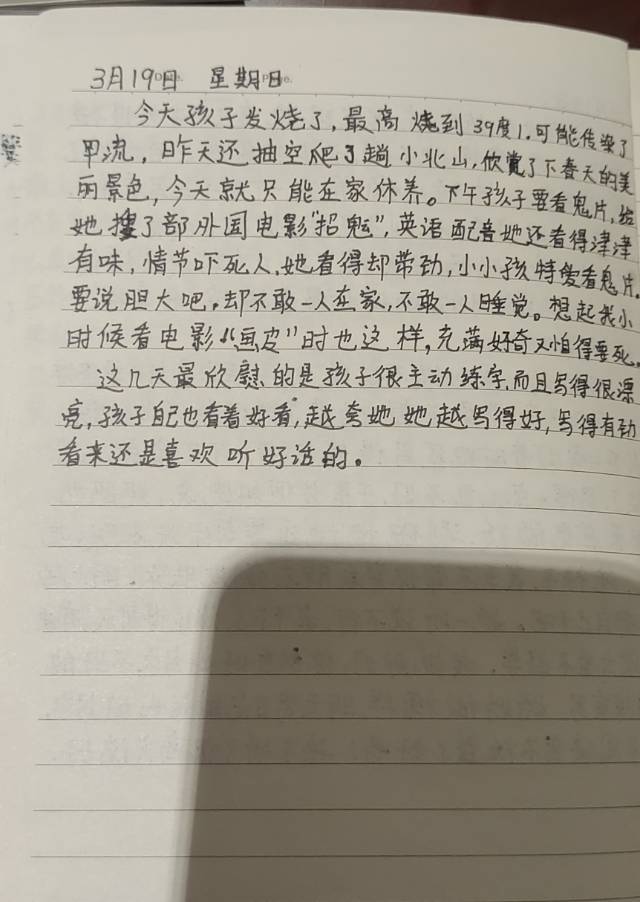 3月19日 星期日
今天孩子发烧了,最高烧到39度1.可能传染了
甲流,昨天还抽空爬了趟小北山,欣赏了下春天的美
丽景色,今天就只能在家休养。下午孩子要看鬼片,给
她搜了部外国电影“招魂”,英语配音她还看得津津
有味,情节吓死人,她看得却带劲,小小孩特爱看鬼片。
要说胆大吧,却不敢一人在家,不敢一人睡觉。想起我小
时候看电影“画皮”时也这样,充满好奇又怕得要死。
这几天最欣慰的是孩子很主动练字,而且写得很漂
亮,孩子自己也看着好看,越夸她她越写得好,写得有劲
看来还是喜欢听好话的。